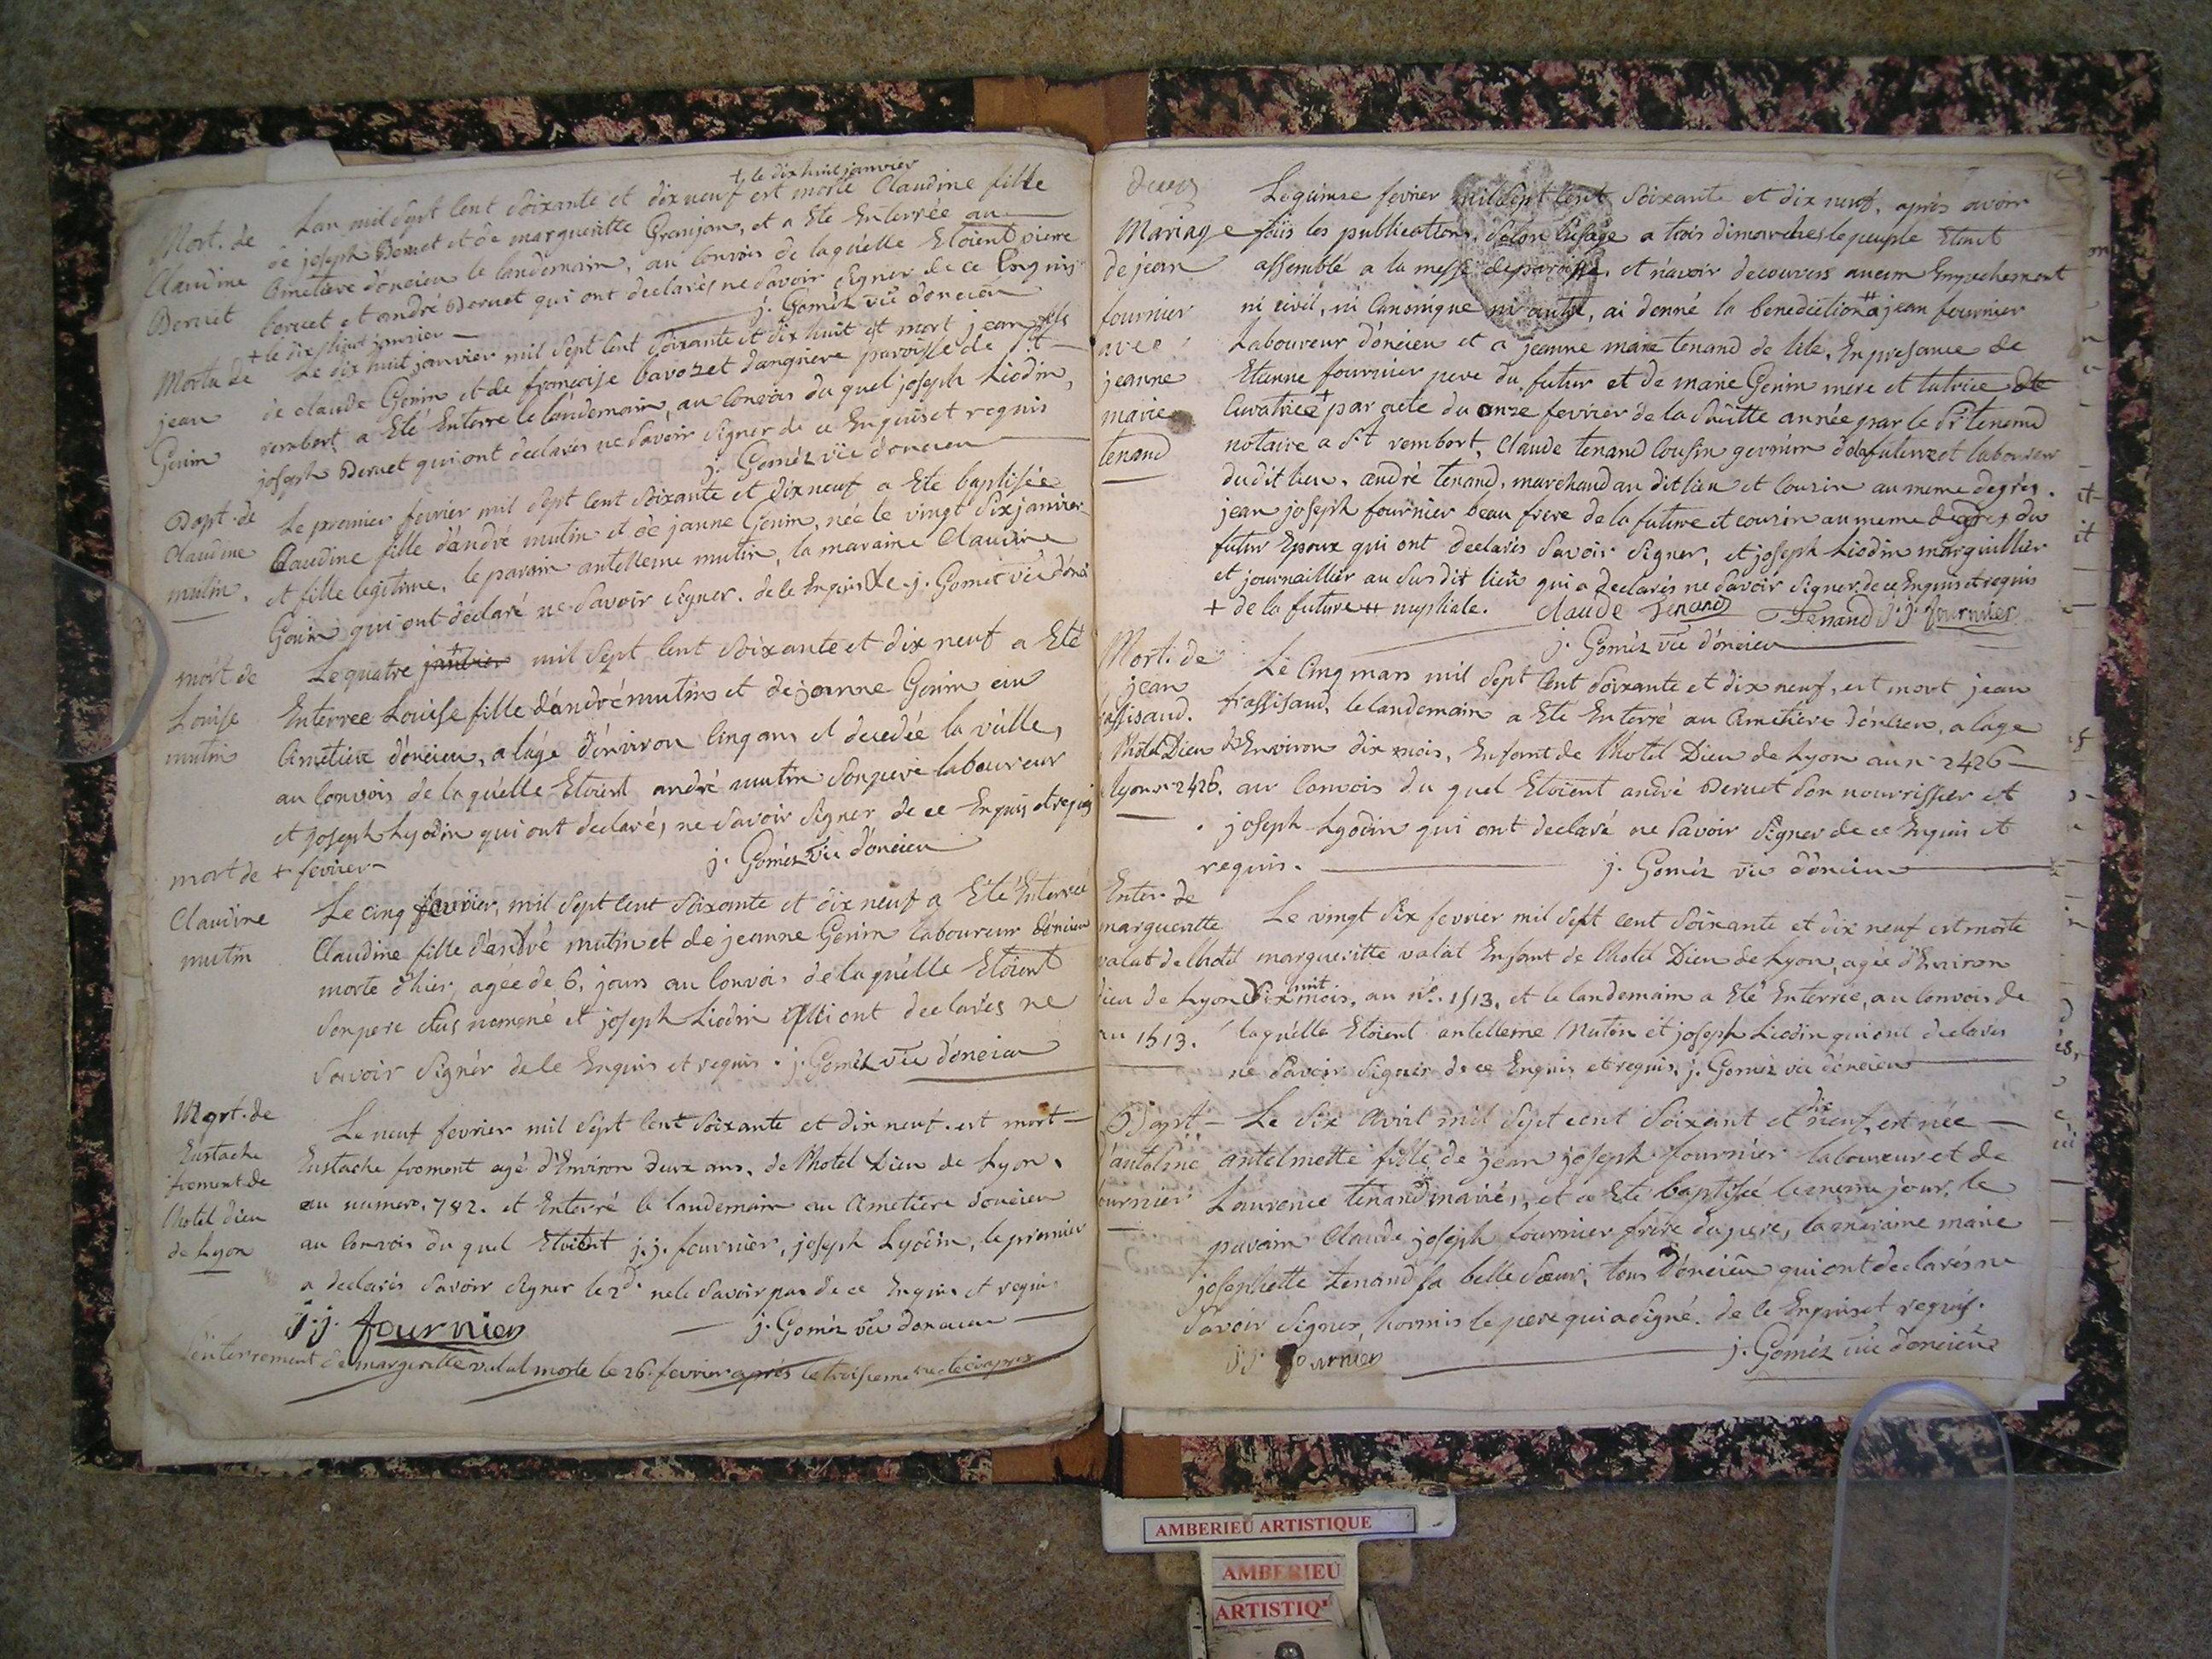 + le dix huit janvier
Mort. de Lan mil sept cent soixante et dix neuf est morte Claudine fille
Claudine de joseph Beruet et de margueritte Granjon, et a Ete Enterrée au
Beruet Cimetiere d'oncieu le landemain, au convois de laquelle Etoient pierre
beruet et andré Beruet qui ont declarés ne savoir signer de ce Enquis
+ le dix huit janvier j. Goméz vic d'oncieu
Morts de Le dix huit janvier mil sept cent soixante et dix huit est mort jean fils
jean de claude Genin et de francoise bavozet d'angriere paroisse de St
Genin rembert, a Eté Enterré le landemain, au convois du quel joseph Liodin,
joseph Beruet qui ont declarés ne savoir signer de ce Enquis et requis
j. Goméz vic d'oncieu
Bapt. de Le premier fevrier mil sept cent soixante et dix neuf a Eté baptisée
Claudine Claudine fille d'andré mutin et de janne Genin, née le vingt six janvier
mutin. et fille legitime, le parain antelleme mutin, la maraine Claudine
Genin qui ont declaré ne savoir signer. de ce Enquis j. Gomez vic d'onci
mort de Le quatre janvier + mil sept cent soixante et dix neuf a Eté
Louise Enterrée Louise fille d'andré mutin et de jeanne Genin au
mutin Cimetiere d'oncieu, a lage d'environ cinq ans et decedée la veille,
au convois de laquelle Etoient andré mutin son pere laboureur
et joseph Lyodin qui ont declarés, ne savoir signer de ce Enquis et requis
+ fevrier j. Goméz vic d'oncieu
mort de
Claudine Le cinq fevrier, mil sept cent soixante et dix neuf a Eté Enterrée
mutin Claudine fille d'andré mutin et de jeanne Genin laboureur d'oncieu
morte d'hier, agée de 6. jours au convois de laquelle Etoient
son pere sus nommé et joseph Liodin qui ont declarés ne
savoir signér de ce Enquis et requis. j. Goméz vic d'oncieu
Mort. de Le neuf fevrier mil sept cent soixante et dix neuf. est mort
Eustache Eustache froment agé d'Environ deux ans, de l'hotel Dieu de Lyon,
froment de au numero. 782. et Enterré le landemain au Cimetiere d'oncieu
l'hotel dieu au convois du quel Etoient j. j. fournier, joseph Lyodin, le premier
de Lyon a declarés savoir signer le 2d. ne le savoir pas de ce Enquis et requis
j. j. fournier j. Goméz vic d'oncieu
l'enterrement de margueritte valat morte le 26. fevrier aprés le troisieme acte cy aprés
deux
Le quinze fevrier mil sept cent soixante et dix neuf, après avoir
Mariage fais les publications, selon l'usage a trois dimanches le peuple Etant
de jean assemblé a la messe de paroisse, et n'avoir decouvers aucun Empechement
fournier ni civil, ni canonique ni autre, ai donné la benediction ++ a jean fournier
avec Laboureur d'oncieu et a jeanne marie tenand de lile, En presance de
jeanne Etienne fournier pere du futur et de marie Genin mere et tutrice
marie Curatrice + par acte du onze fevrier de la année par le Sr tenand
tenand notaire a St rembert, Claude tenand cousin germain de la future et laboureur
du dit lieu, andré tenand, marchand au dit lieu et cousin au meme degrés.
jean joseph fournier beau frere de la future et cousin au meme degrés du
futur Epoux qui ont declarés savoir signer, et joseph Liodin marguillier
et journaillier au sus dit lieu qui a declarés ne savoir signer. de ce Enquis et requis
+ de la future ++ nuptiale. Claude Tenand Tenand j. j. fournier
j. Goméz vic d'oncieu
Mort. de Le cinq mars mil sept cent soixante et dix neuf, est mort jean
jean frassisaud, le landemain a Ete Enterré au Cimetiere d'oncieu, a lage
l'hotel Dieu d'Environ dix mois, Enfant de l'hotel Dieu de Lyon au n° 2426
Lyon n° 2426. au convois du quel Etoient andré Beruet son nourrissier et
joseph Lyodin qui ont declaré ne savoir signer de ce Enquis et
requis. j. Goméz vic d'oncieu
Enter. de
margueritte Le vingt six fevrier mil sept cent soixante et dix neuf est morte
valat de l'hotel margueritte valat Enfant de l'hotel Dieu de Lyon, agée d'Environ
dieu de Lyon mois, au n°. 1513, et le landemain a Eté Enterrée, au convois de
au 1513. laquelle Etoient antelleme Mutin et joseph Liodin qui ont declarés
ne savoir signer de ce Enquis et requis, j. Goméz vic d'oncieu
Bapt Le six Avril mil sept cent soixant et dix neuf, est née
d'antelme antelmette fille de jean joseph fournier laboureur et de
fournier Laurence tenand mariés, et a Ete baptisée le meme jour, le
parain Claude joseph fournier frere du pere, la maraine marie
josephette tenand sa belle soeur, tous d'oncieu qui ont declarés ne
savoir signer, hormis le pere qui a signé. de ce Enquis et requis.
j. j. fournier j. Goméz vic d'oncieu
AMBERIEU ARTISTIQUE
AMBERIEU
ARTISTIQ'